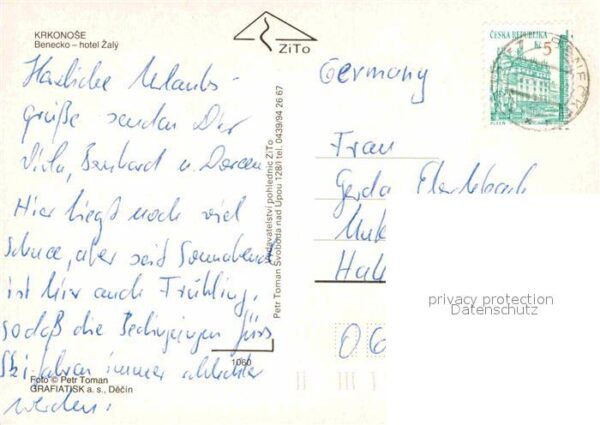 KRKONOŠE
Benecko – hotel Žalý
ZiTo
ČESKÁ REPUBLIKA
Kč 5
PLZEŇ
Herzliche Urlaubs-
grüße senden Dir
Bernhard u. Doreen
Hier liegt noch viel
Schnee, aber seit Sonnabend
ist hier auch Frühling,
sodaß die Bedingungen fürs
Skifahren immer schlechter
werden.
Vydavatelství pohlednic ZiTo
Petr Toman Svoboda nad Úpou 128/I tel. 0439/94 26 67
Germany
Frau
Gerda
06
privacy protection
Datenschutz
1060
Foto © Petr Toman
GRAFIATISK a. s., Děčín